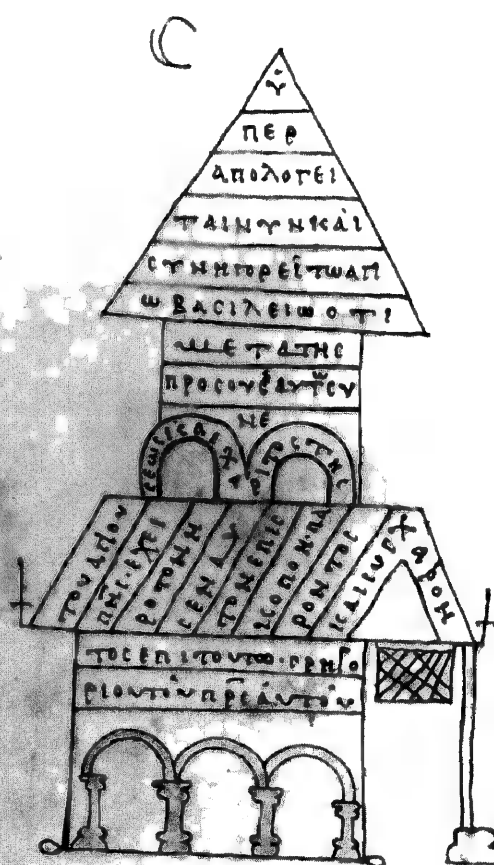 Ὑ
ΠΕΡ
ΑΠΟΛΟΓΕΙ
ΤΑΙΝΥΝΚΑῚ
ϹΥΝΗΓΟΡΕΙ͂ΤΩΑΠ
ΩΒΑϹΙΛΕΙΩΟΤΙ
ΜΕΤΑΤΗϹ
ΠΡΟϹΟΥϹΑΥΤΩϹΥ
ΝΕ
ϹΕΩϹΚΑΙΧΑΡΙΤΟϹΤΗϹ
ΤΟΥΑΠΟΥ
ΠΝϹ·ΕΧΕΙ
ΡΟΤΟΝΗ
ϹΕΝΑΥ
ΤΟΝΕΠΙϹ
ΚΟΠΟΝ·ΠΑ
ΡΟΝΤΟϹ
ΑΡΟΝ
ΤΟϹΕΠΙΤΟΥΤΩ·ΓΡΗΓΟ
ΡΙΟΥΤΟΥΠΡ̅ϹΑΥΤΟΥ